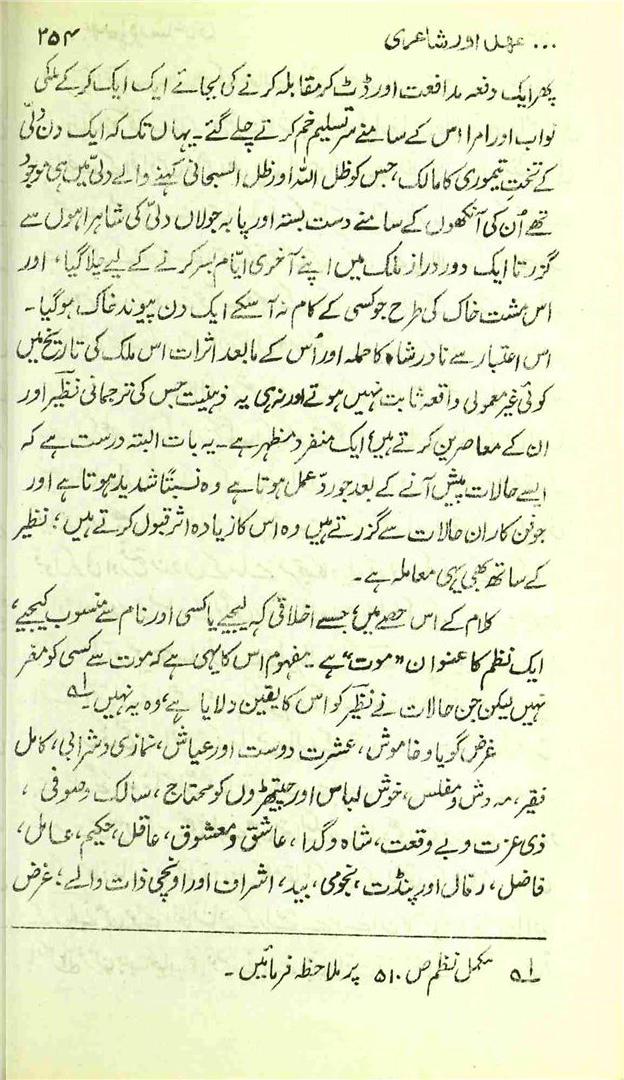 ... عہد اور شاعری ۲۵۴
پھر ایک دفعہ مدافعت اور ڈٹ کر مقابلہ کرنے کی بجائے ایک ایک کرکے ملکی
نواب اور امرا اس کے سامنے سر تسلیم خم کرتے چلے گئے۔ یہاں تک کہ ایک دن دلّی
کے تختِ تیموری کا مالک، جس کو ظل اللہ اور ظل السبحانی کہنے والے دلیّ میں ہی موجود
تھے اُن کی آنکھوں کے سامنے دست بستہ اور پا بہ جولاں دلیّ کی شاہراہوں سے
گزرتا ایک دور دراز ملک میں اپنے آخری ایّام بسر کرنے کے لیے چلا گیا، اور
اس مشت خاک کی طرح جو کسی کے کام نہ آسکے ایک دن پیوند خاک ہوگیا۔
اس اعتبار سے نادر شاہ کا حملہ اور اُس کے مابعد اثرات اس ملک کی تاریخ میں
کوئی غیر معمولی واقعہ ثابت نہیں ہوتے اور نہ ہی یہ ذہنیت جس کی ترجمانی نظیر اور
ان کے معاصرین کرتے ہیں، ایک منفرد مظہر ہے۔ یہ بات البتہ درست ہے کہ
ایسے حالات پیش آنے کے بعد جو ردّ عمل ہوتا ہے وہ نسبتاً شدید ہوتا ہے اور
جو فن کار ان حالات سے گزرتے ہیں وہ اس کا زیادہ اثر قبول کرتے ہیں؛ نظیر
کے ساتھ بھی یہی معاملہ ہے۔
کلام کے اس حصے میں، جسے اخلاقی کہہ لیجیے یا کسی اور نام سے منسوب کیجیے،
ایک نظم کا عنوان ”موت“ ہے۔ مفہوم اس کا یہی ہے کہ موت سے کسی کو مفر
نہیں لیکن جن حالات نے نظیر کو اس کا یقین دلایا ہے، وہ یہ نہیں۔ ؎۱
غرض گویا و خاموش، عشرت دوست اور عیاش، نمازی و شرابی، کامل
فقیر، مہ وش و مفلس، خوش لباس اور چیتھڑوں کو محتاج، سالک و صوفی،
ذی عزت و بے وقعت، شاہ و گدا، عاشق و معشوق، عاقل، حکیم، عامل،
فاضل، رمّال اور پنڈت، نجومی، بید، اشراف اور اونچی ذات والے؛ غرض
؎۱ مکمل نظم ص ۵۱۰ پر ملاحظہ فرمائیں۔